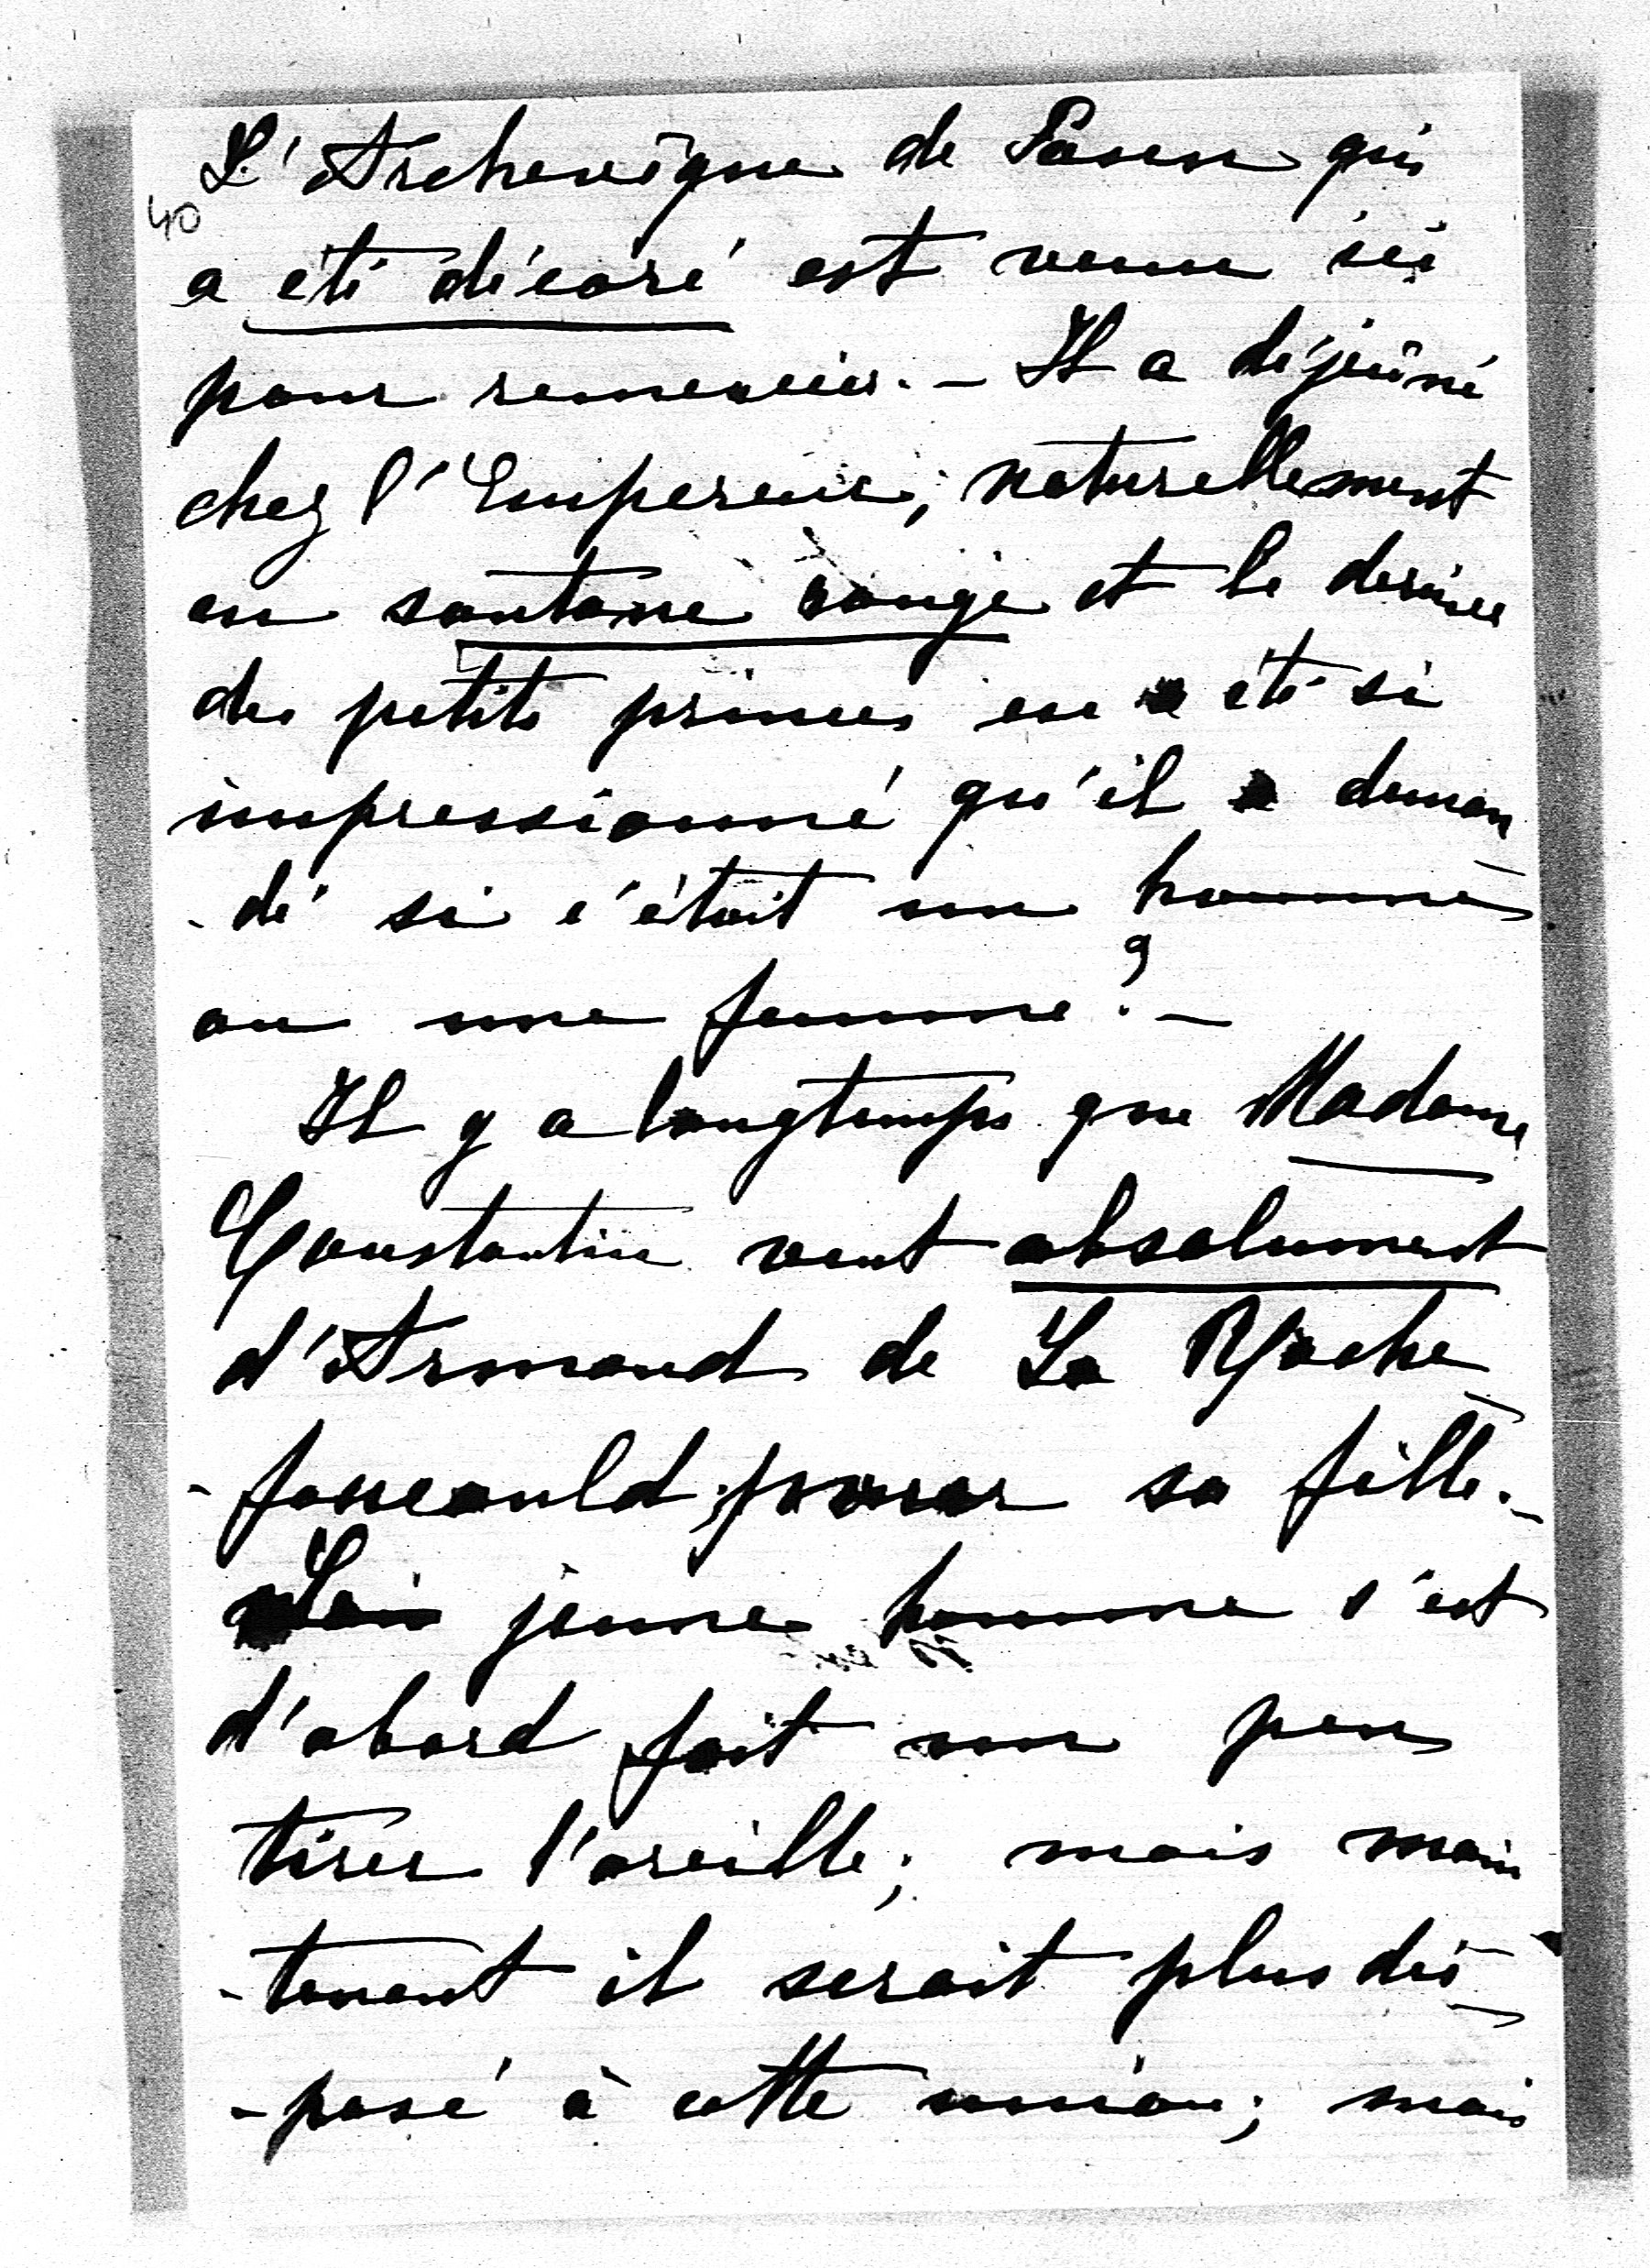 L'Archevêque de Posen qui
40
a été décoré est venu ici
pour remercier. — Il a déjeûné
chez l'Empereur; naturellement
en soutane rouge et le dernier
des petits princes en a été si
impressionné qu'il a deman
-dé si c'était un homme
ou une femme? —
Il y a longtemps que Madame
Constantin veut absolument
d'Armand de La Roche
-foucauld pour sa fille. —
jeune homme s'est
d'abord fait un peu
tirer l'oreille; mais main
-tenant il serait plus dis-
-posé à cette union; mais